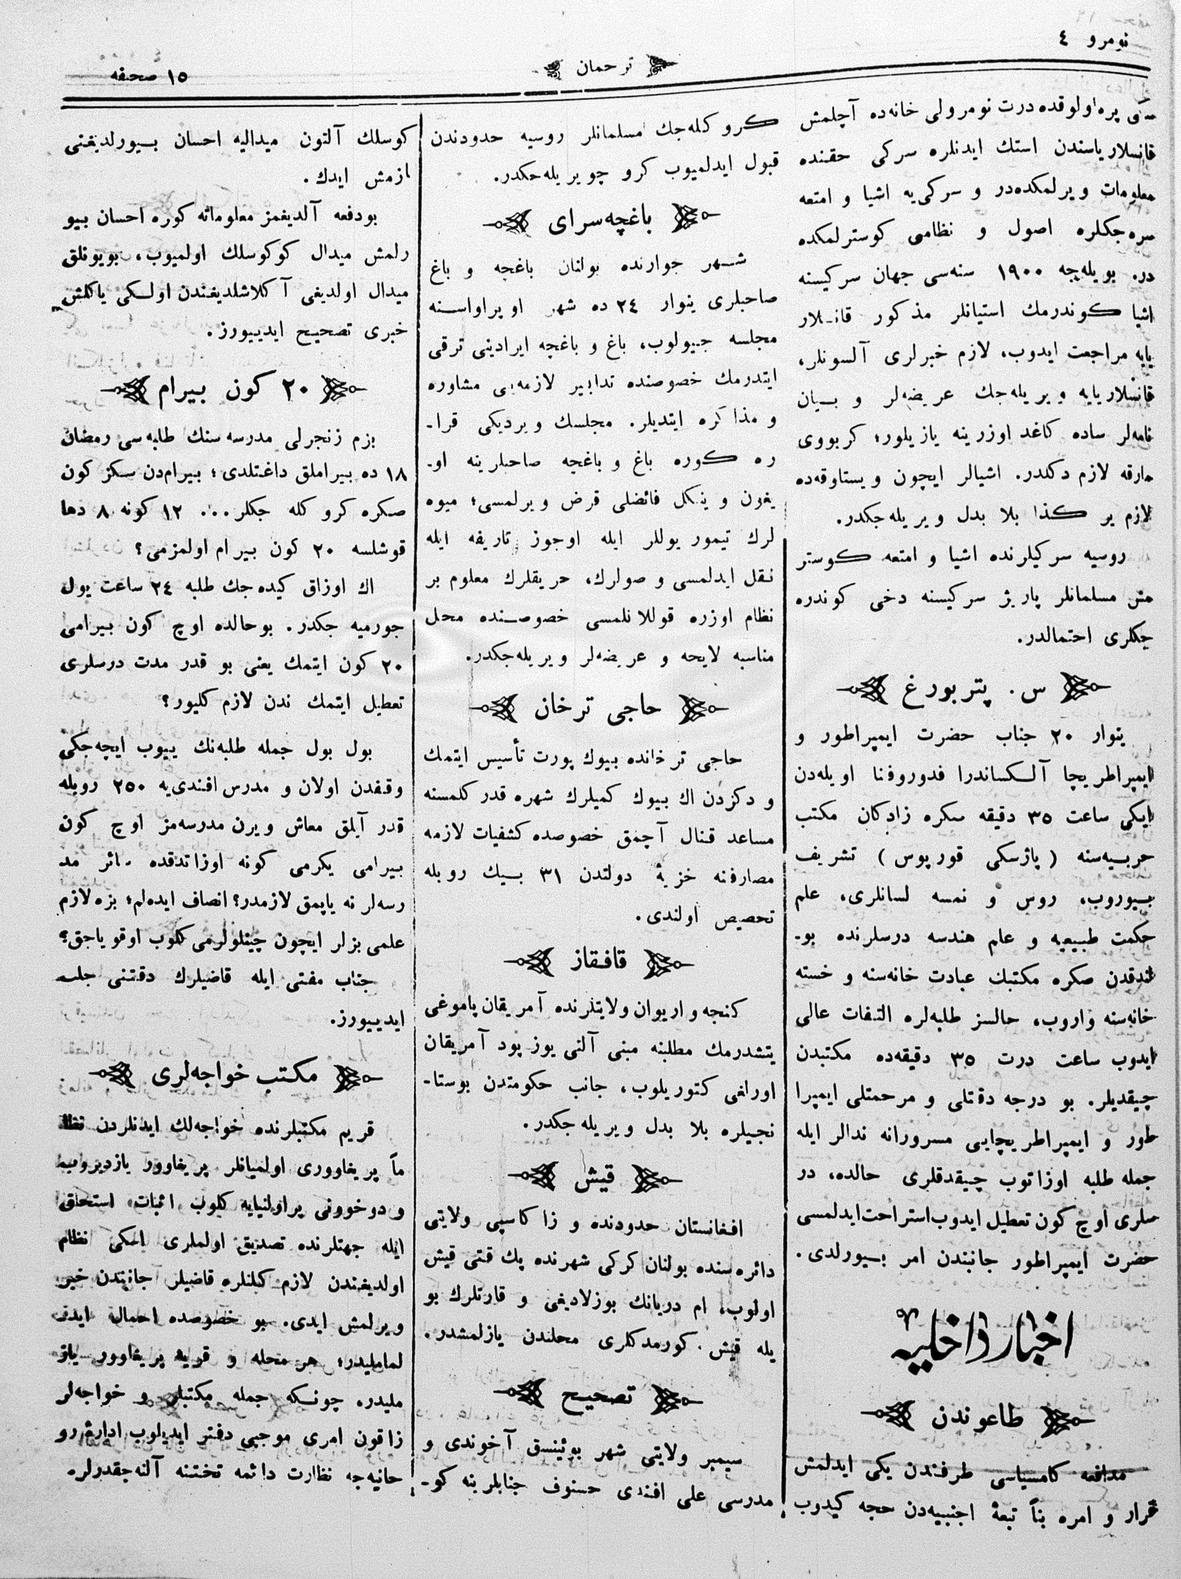 نومرو ٤
ترجمان
١٥ صحفه
سکی پره‌اولوقده درت نومرولی خانه‌ده آچلمش
قانسلاریاسندن استك ایدنلره سرکی حقنده
معلومات ویرلمکده‌در و سرکی‌یه اشیا و امتعه
سره‌جکلره اصول و نظامی کوسترلمکده
در. بویله‌چه ١٩٠٠ سنه‌سی جهان سرکیسنه
اشیا کوندرمك استیانلر مذکور قانسلار
یایه مراجعت ایدوب، لازم خبرلری آلسونلر،
قانسلاریایه ویریله‌جك عریضه‌لر و بیان
نامه‌لر ساده کاغد اوزرینه یازیلور؛ کربووی
مارقه لازم دکلدر. اشیالر ایچون ویستاوقه‌ده
لازم یر کذا بلا بدل ویریله‌جکدر.
روسیه سرکیلرنده اشیا و امتعه کوستر
مش مسلمانلر پاریژ سرکیسنه دخی کوندره
جکلری احتمالدر.
س. پتربورغ
ینوار ٢٠ جناب حضرت ایمپراطور و
ایمپراطریچا آلکساندرا فدوروفنا اویله‌دن
ایکی ساعت ٣٥ دقیقه سکره زادکان مکتب
حربیه‌سنه (پاژسکی قورپوس) تشریف
بیوروب، روس و نمسه لسانلری، علم
حکمت طبیعیه و علم هندسه درسلرنده بو-
لندقدن صکره مکتبك عبادت خانه‌سنه و خسته
خانه‌سنه واروب، حالسز طلبه‌لره التفات عالی
ایدوب ساعت درت ٣٥ دقیقه‌ده مکتبدن
چیقدیلر. بو درجه دقتلی و مرحمتلی ایمپرا
طور و ایمپراطریچایی مسرورانه ندالر ایله
جمله طلبه اوزاتوب چیقدقلری حالده، در
سلری اوچ کون تعطیل ایدوب استراحت ایدلمسی
حضرت ایمپراطور جانبندن امر بیورلدی.
اخبار داخلیه
طاعوندن
مدافعه کامسیاسی طرفندن یکی ایدلمش
قرار و امره بناً تبعهٔ اجنبیه‌دن حجه کیدوب
کرو کله‌جك مسلمانلر روسیه حدودندن
قبول ایدلمیوب کرو چویریله‌جکدر.
باغچه‌سرای
شهر جوارنده بولنان باغچه و باغ
صاحبلری ینوار ٢٤ ده شهر اوپراواسنه
مجلسه جیولوب، باغ و باغچه ایرادینی ترقی
ایتدرمك خصوصنده تدابیر لازمه‌یی مشاوره
و مذاکره ایتدیلر. مجلسك ویردیکی قرا-
ره کوره باغ و باغچه صاحبلرینه او-
یغون و ینکل فائضلی قرض ویرلمسی؛ میوه
لرك تیمور یوللر ایله اوجوز تاریفه ایله
نقل ایدلمسی و صولرك، حریقلرك معلوم بر
نظام اوزره قوللانلمسی خصوصنده محل
مناسبه لایحه و عریضه‌لر ویریله‌جکدر.
حاجی ترخان
حاجی ترخانده بیوك پورت تأسیس ایتمك
و دکزدن اك بیوك کمیلرك شهره قدر کلمسنه
مساعد قنال آچمق خصوصده کشفیات لازمه
مصارفنه خزینهٔ دولتدن ٣١ بیك روبله
تخصیص اولندی.
قافقاز
کنجه و اریوان ولایتلرنده آمریقان پاموغی
یتشدرمك مطلبنه مبنی آلتی یوز پود آمریقان
اوراغی کتوریلوب، جانب حکومتدن بوستا-
نجیلره بلا بدل ویریله‌جکدر.
قیش
افغانستان حدودنده و زاکاسپی ولایتی
دائره‌سنده بولنان کرکی شهرنده پك قتی قیش
اولوب، ام دریانك بوزلادیغی و قارتلرك بو
یله قیش کورمدکلری محلندن یازلمشدر.
تصحیح
سیمبر ولایتی شهر بوئینسق آخوندی و
مدرسی علی افندی حسنوف جنابلرینه کو-
کوسلك آلتون میدالیه احسان بیورلدیغنی
یازمش ایدك.
بودفعه آلدیغمز معلوماته کوره احسان بیو
رلمش میدال کوکوسلك اولمیوب، بویونلق
میدال اولدیغی آکلاشلدیغندن اولکی یاکلش
خبری تصحیح ایدییورز.
٢٠ کون بیرام
بزم زنجرلی مدرسه‌سنك طلبه‌سی رمضان
١٨ ده بیراملق داغتلدی؛ بیرام‌دن سکز کون
صکره کرو کله جکلر... ١٢ کونه ٨ دها
قوشلسه ٢٠ کون بیرام اولمزمی؟
اك اوزاق کیده‌جك طلبه ٢٤ ساعت یول
جورمیه جکدر. بوحالده اوچ کون بیرامی
٢٠ کون ایتمك یعنی بو قدر مدت درسلری
تعطیل ایتمك ندن لازم کلیور؟
بول بول جمله طلبه‌نك ییوب ایچه‌جکی
وقفدن اولان و مدرس افندی‌یه ٢٥٠ روبله
قدر آیلق معاش ویرن مدرسه‌مز اوچ کون
بیرامی یکرمی کونه اوزاتدقده سائر مد
رسه‌لر نه یاپمق لازمدر؟ انصاف ایده‌لم؛ بزه لازم
علمی بزلر ایچون چیتلولرمی کلوب اوقویاجق؟
جناب مفتی ایله قاضیلرك دقتنی جلب
ایدییورز.
مکتب خواجه‌لری
قریم مکتبلرنده خواجه‌لك ایدنلردن نظا
ماً پریغاووری اولمیانلر پریغاوور یازدیروب
و دوخوونی پراولنیایه کلوب اثبات استحقاق
ایله جهتلرنده تصدیق اولملری اسکی نظام
اولدیغندن لازم کلنلره قاضیلر جانبندن خبر
ویرلمش ایدی. بو خصوصده اهمال ایدل
لمامیلیدر؛ هر محله و قریه پریغاوور یاز
ملیدر. چونکه جمله مکتبلر و خواجه‌لر
زاقون امری موجبی دفتر ایدیلوب ادارهٔ رو
حانیه‌جه نظارت دائمه تحتنه آلنه‌جقدرلر.